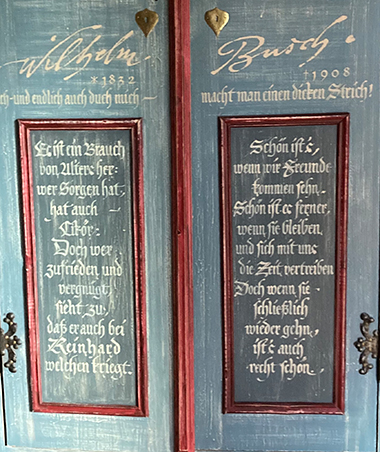 Wilhelm
Busch.
*1832
†1908
ch-und endlich auch duch mich-
macht man einen dicken Strich!
Es ist ein Brauch
von Alters her:
wer Sorgen hat,
hat auch
Likör.
Doch wer
zufrieden und
vergnügt
sieht zu,
daß er auch bei
Reinhard
welchen kriegt.
Schön ist's,
wenn wir Freunde
kommen sehn.
Schön ist es ferner,
wenn sie bleiben,
und sich mit uns
die Zeit vertreiben
Doch wenn sie
schließlich
wieder gehn,
ist's auch
recht schön.